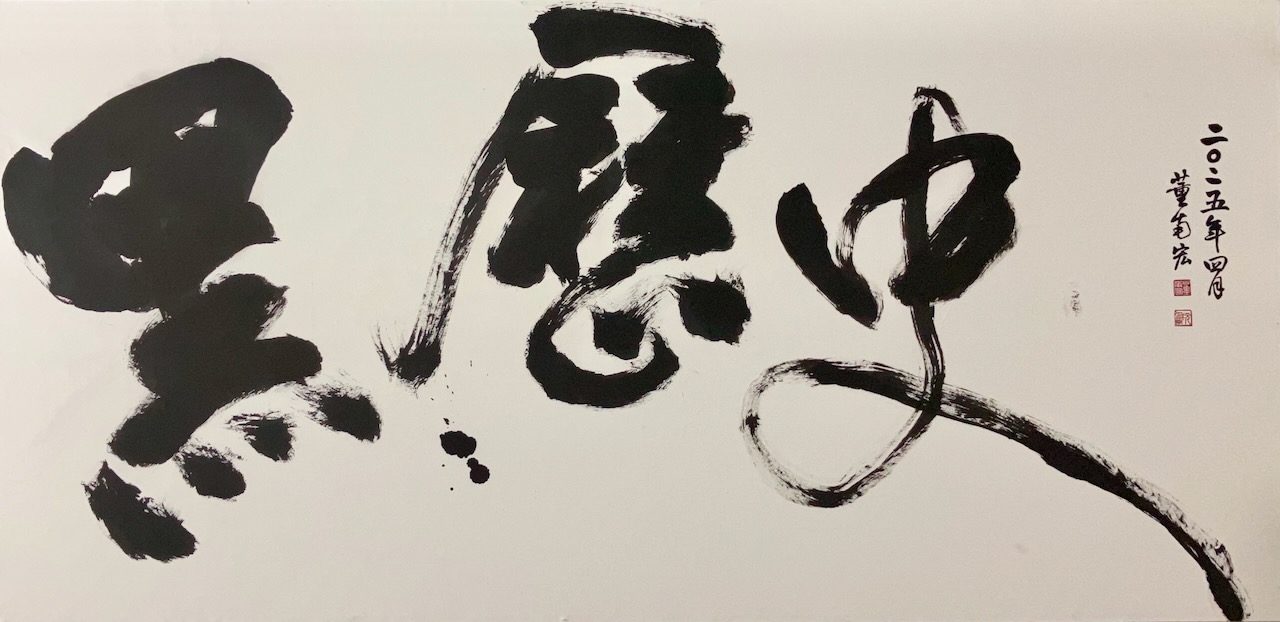 黑歷史
二〇二五年四月
董甫宏